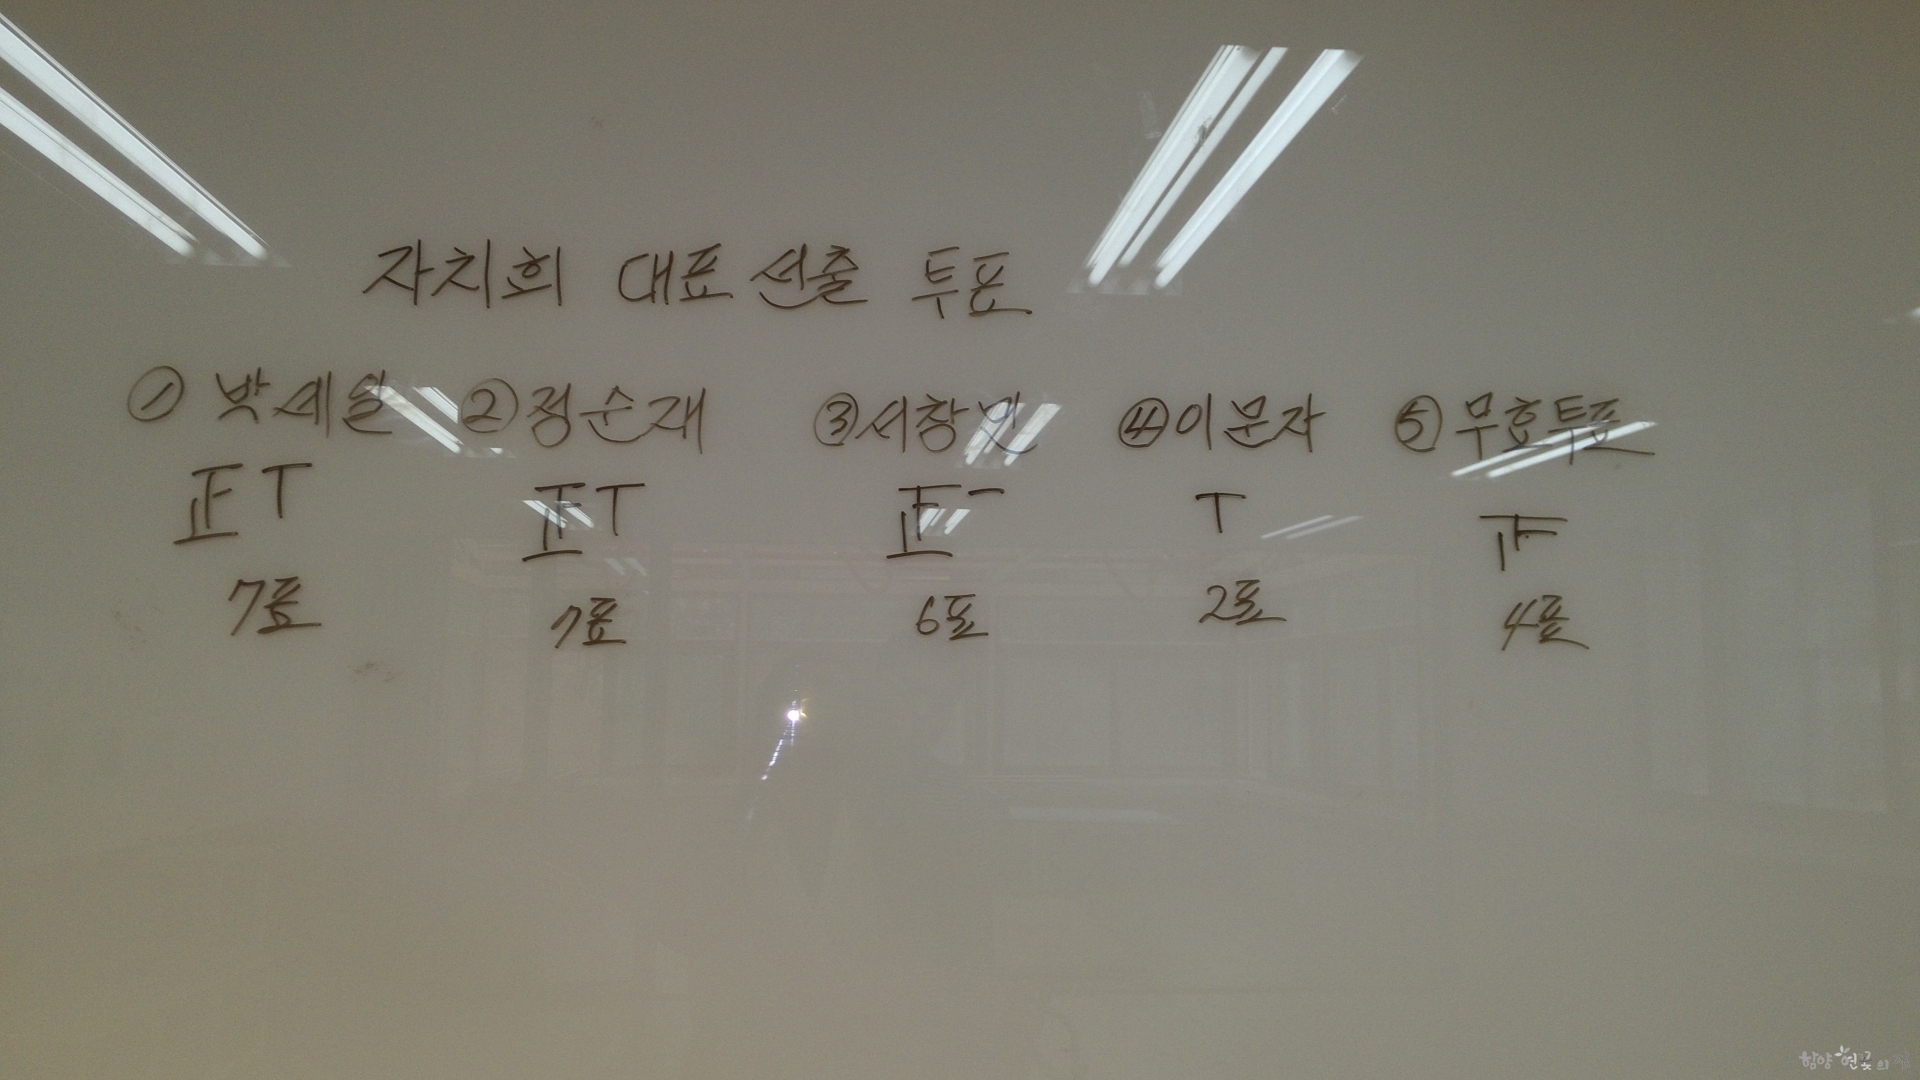 자치회 대표 선출 투표
① 박세일 ② 정순재 ③ 서창민 ④ 이문자 ⑤ 무효투표
正 T 正 T 正 一 T 正
7표 7표 6표 2표 4표
함양 연꽃의 집